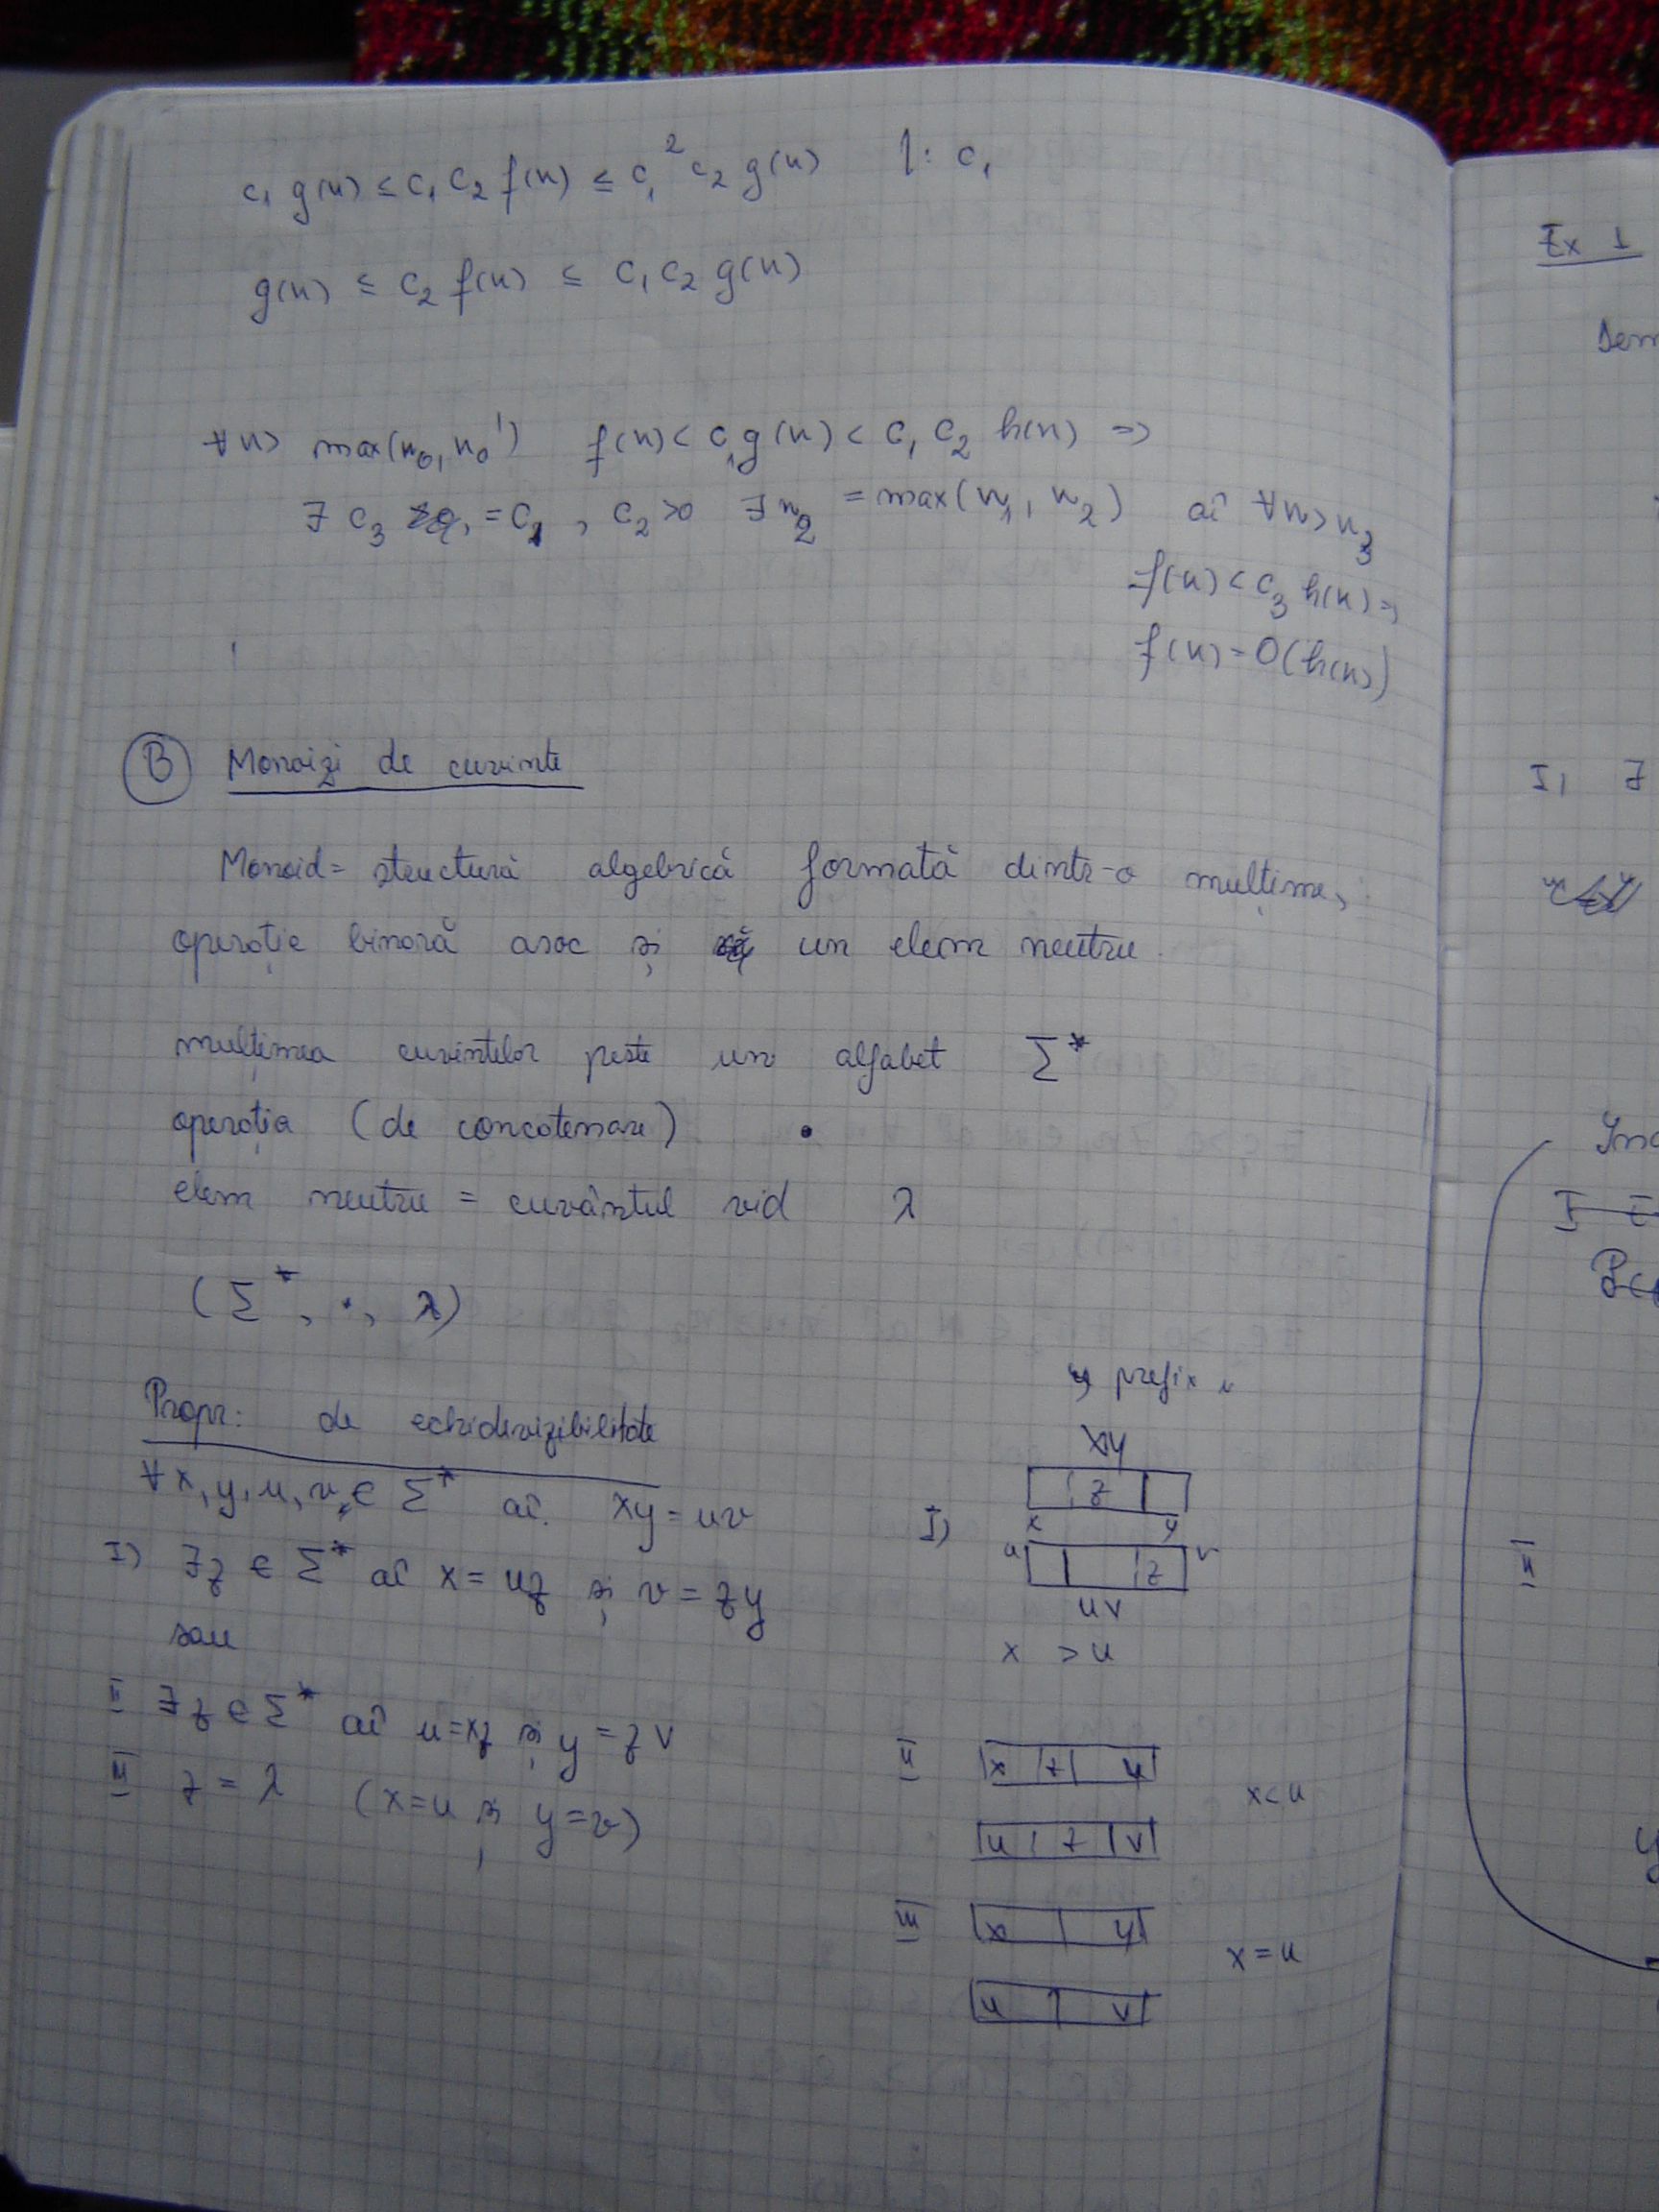 c₁ g(n) ≤ c₁ c₂ f(n) ≤ c₁² c₂ g(n) |: c₁
g(n) ≤ c₂ f(n) ≤ c₁ c₂ g(n)
∀ n > max(n₀, n₀') f(n) < c₁ g(n) < c₁ c₂ h(n) =>
∃ c₃ = c₁, c₂ > 0 ∃ n₂ = max(n₁, n₂) aî ∀ n > n₃
f(n) < c₃ h(n) =>
f(n) = O(h(n))
B Monoizi de cuvinte
Monoid = structură algebrică formată dintr-o mulțime,
operație binară asoc și un elem neutru
mulțimea cuvintelor peste un alfabet Σ*
operația (de concatenare) •
elem neutru = cuvântul vid λ
(Σ*, •, λ)
Propr: de echidivizibilitate
∀ x, y, u, v ∈ Σ* aî. xy = uv
I) ∃ z ∈ Σ* aî x = uz și v = zy
sau
II ∃ z ∈ Σ* aî u = xz și y = zv
III z = λ (x = u și y = v)
prefix
xy
I) z
x y
u z v
uv
x > u
II x z y
x < u
u z v
III x y
x = u
u v
Ex 1
Dem
I) ∃
II